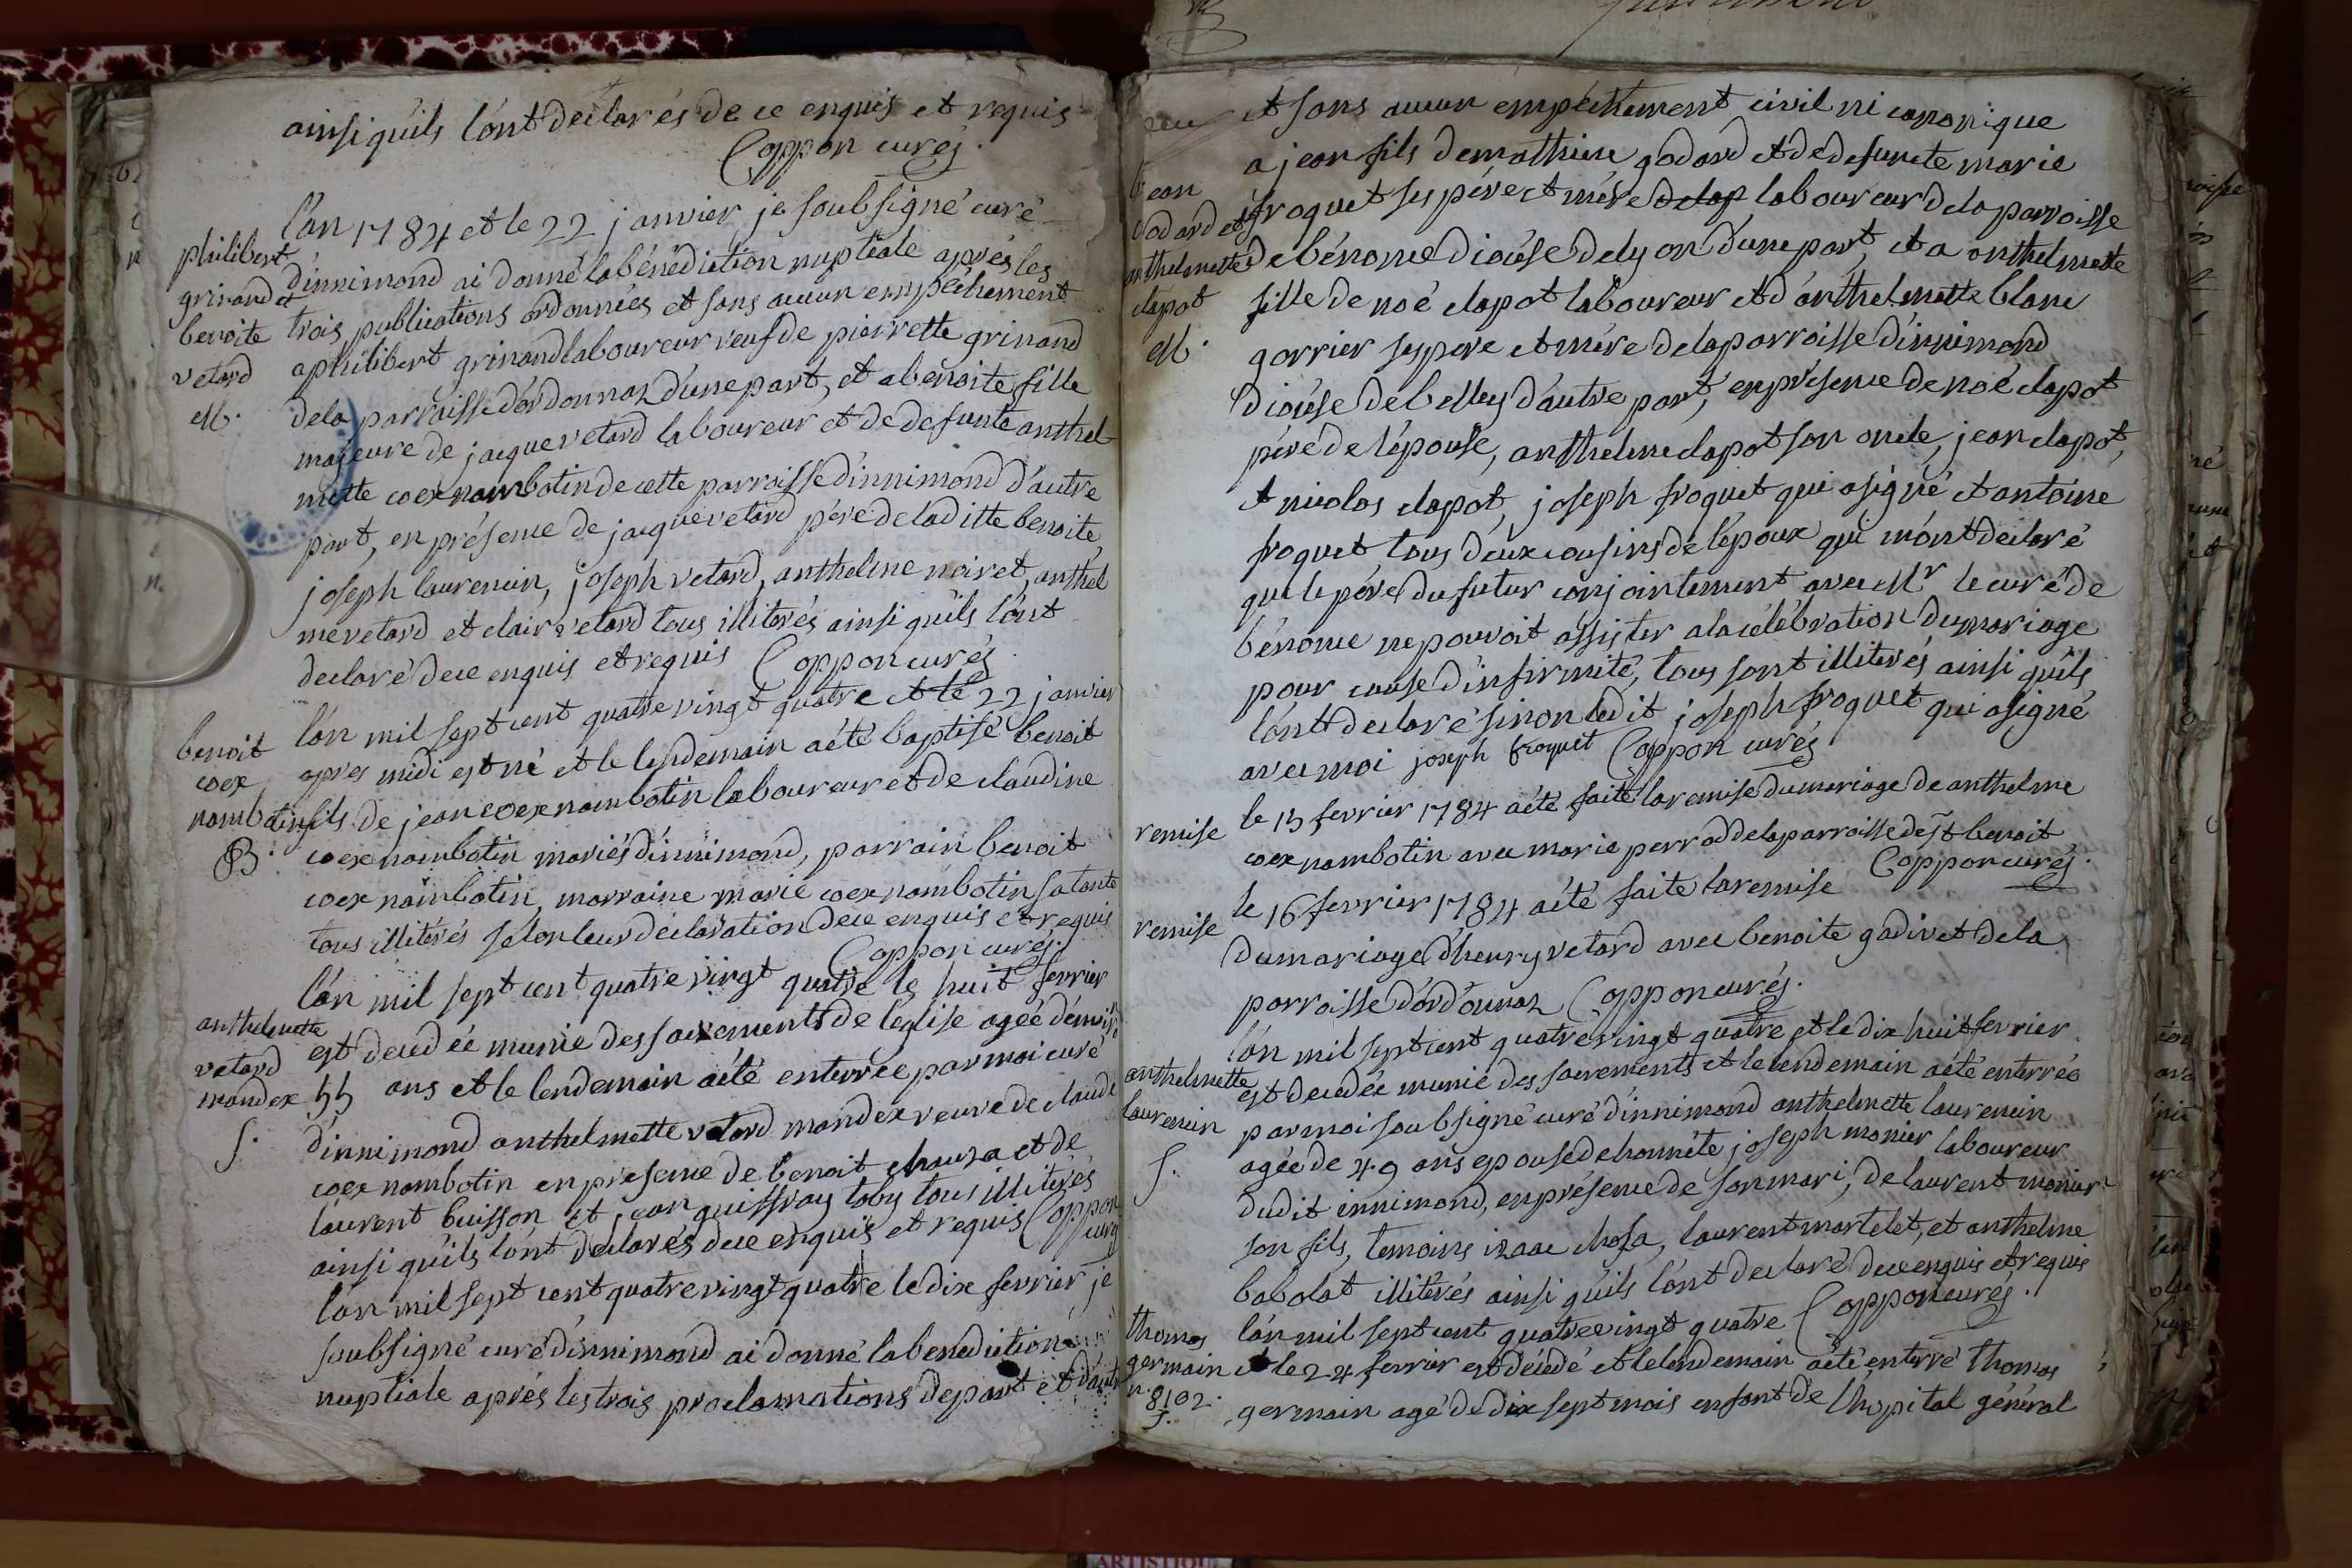 ainsi quils l'ónt declarés de ce enquis et requis
Coppon curés.
philibert
grinand et
benoite
vetard
M.
l'án 1784 et le 22 janvier je soubsigné curé
d'innimond ai donné la bénédiction nuptiale aprés les
trois publications ordonnées et sans aucun empéchement
a philibert grinand laboureur veuf de pierrette grinand
de la parroisse d'ordonnaz d'une part, et a benoite fille
majeure de jacque vetard laboureur et de defunte anthel
mette coex nambotin de cette parroisse d'innimond d'autre
part, en présence de jacque vetard pére de laditte benoite,
joseph laurencin, joseph vetard, anthelme noiret, anthel
me vetard et clair vetard tous illiterés ainsi quils l'ónt
declaré de ce enquis et requis Coppon curés
benoit
coex
nambotin
B.
l'án mil sept cent quatre vingt quatre et le 22 janvier
apres midi est né et le lendemain a été baptisé benoit
fils de jean coex nambotin laboureur et de claudine
coex nambotin mariés d'innimond, parrain benoit
coex nambotin, marraine marie coex nambotin sa tante
tous illitérés selon leur déclaration de ce enquis et requis
Coppon curés.
anthelmette
vetard
mandex
s.
l'án mil sept cent quatre vingt quatre le huit fevrier
est decedée munie des sacrements de l'eglise agée d'environ
55 ans et le lendemain a été enterrée par moi curé
d'innimond anthelmette vetard mandex veuve de claude
coex nambotin en presence de benoit chauza et de
laurent buisson et jean guiffray toby tous illitérés
ainsi qu'ils l'ónt declarés de ce enquis et requis Coppon
curés
l'án mil sept cent quatre vingt quatre le dix fevrier je
soubsigné curé d'innimond ai donné la benediction
nuptiale aprés les trois proclamations de part et d'autre
et sans aucun empéchement civil ni canonique
jean
godard et
anthelmette
clapot
M.
a jean fils de mathieu godard et de defuncte marie
froquet ses pére et mére de lap laboureur de la parroisse
de bénonce diocése de lyon d'une part, et a anthelmette
fille de noé clapot laboureur et d'anthelmette blanc
gorrier ses pere et mére de la parroisse d'innimond
diocése de belley d'autre part, en présence de noé clapot
pére de l'épouse, anthelme clapot son oncle, jean clapot,
et nicolas clapot, joseph froquet qui a signé et antoine
froquet tous deux cousins de l'époux qui m'ónt declaré
que le pére du futur conjointement avec Mr le curé de
bénonce ne pouvoit assister a la célébration du mariage
pour cause d'infirmité, tous sont illiterés ainsi quils
l'ónt declaré sinon ledit joseph froquet qui a signé
avec moi joseph froquet Coppon curés
remise
le 13 fevrier 1784 a été faite la remise du mariage de anthelme
coex nambotin avec marie perrod de la parroisse de st benoit
Coppon curés.
remise
le 16 fevrier 1784 a été faite la remise
du mariage d'henry vetard avec benoite gadivet de la
parroisse d'ordonnaz Coppon curés.
anthelmette
laurencin
s.
l'án mil sept cent quatre vingt quatre et le dix huit fevrier
est decedée munie des sacrements et le lendemain a été enterrée
par moi soubsigné curé d'innimond anthelmette laurencin
agée de 49 ans epouse de honnéte joseph monier laboureur
dudit innimond, en présence de son mari, de laurent monier
son fils, temoins izaac chosa, laurent martelet, et anthelme
babolat illitérés ainsi quils l'ónt declaré de ce enquis et requis
Coppon curés.
thomas
germain
n. 8102.
s.
l'án mil sept cent quatre vingt quatre
et le 24 fevrier est décédé et le lendemain a été enterré thomas
germain agé de dix sept mois enfant de l'hopital général